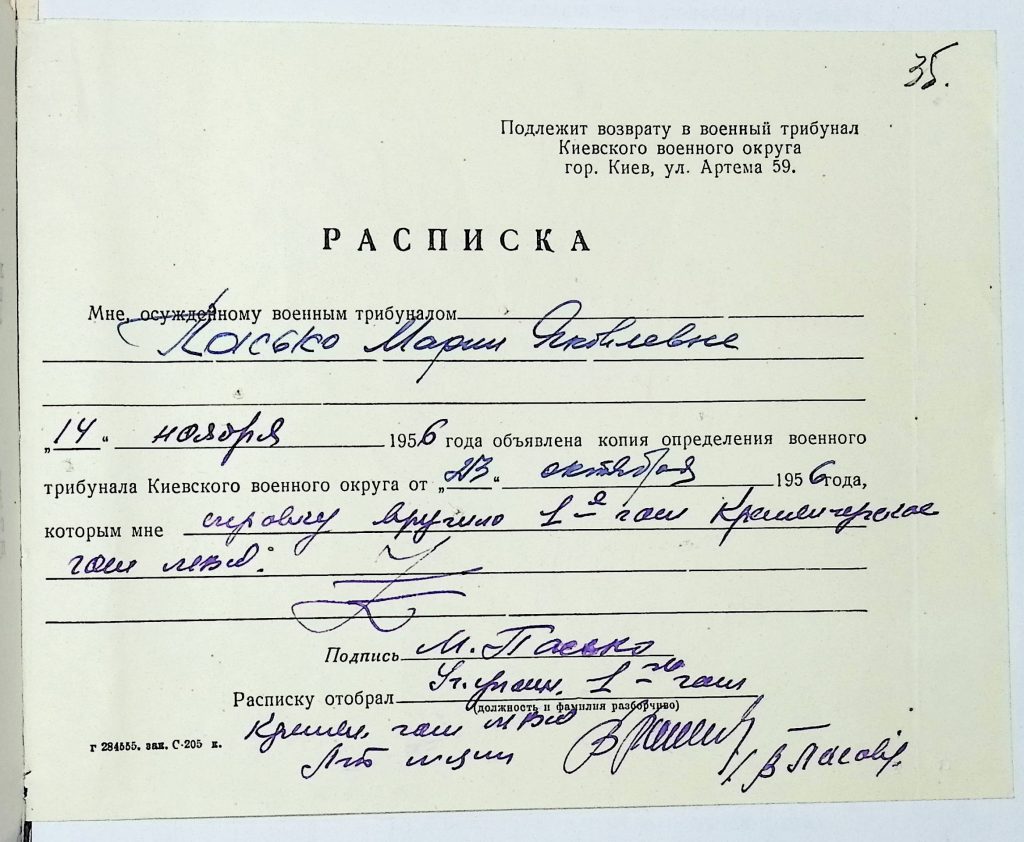 35.
Подлежит возврату в военный трибунал
Киевского военного округа
гор. Киев, ул. Артема 59.
РАСПИСКА
Мне, осужденному военным трибуналом
Пасько Марии Яковлевне
„14“ ноября 1956 года объявлена копия определения военного
трибунала Киевского военного округа от „23“ октября 1956 года,
которым мне справку вручило 1-е гом Кременчугское
гом МВД.
Подпись М. Пасько
Расписку отобрал Уч. уполн. 1-го гом
(должность и фамилия разборчиво)
Кремен. гом МВД
г 284555. зак. С-205 к.